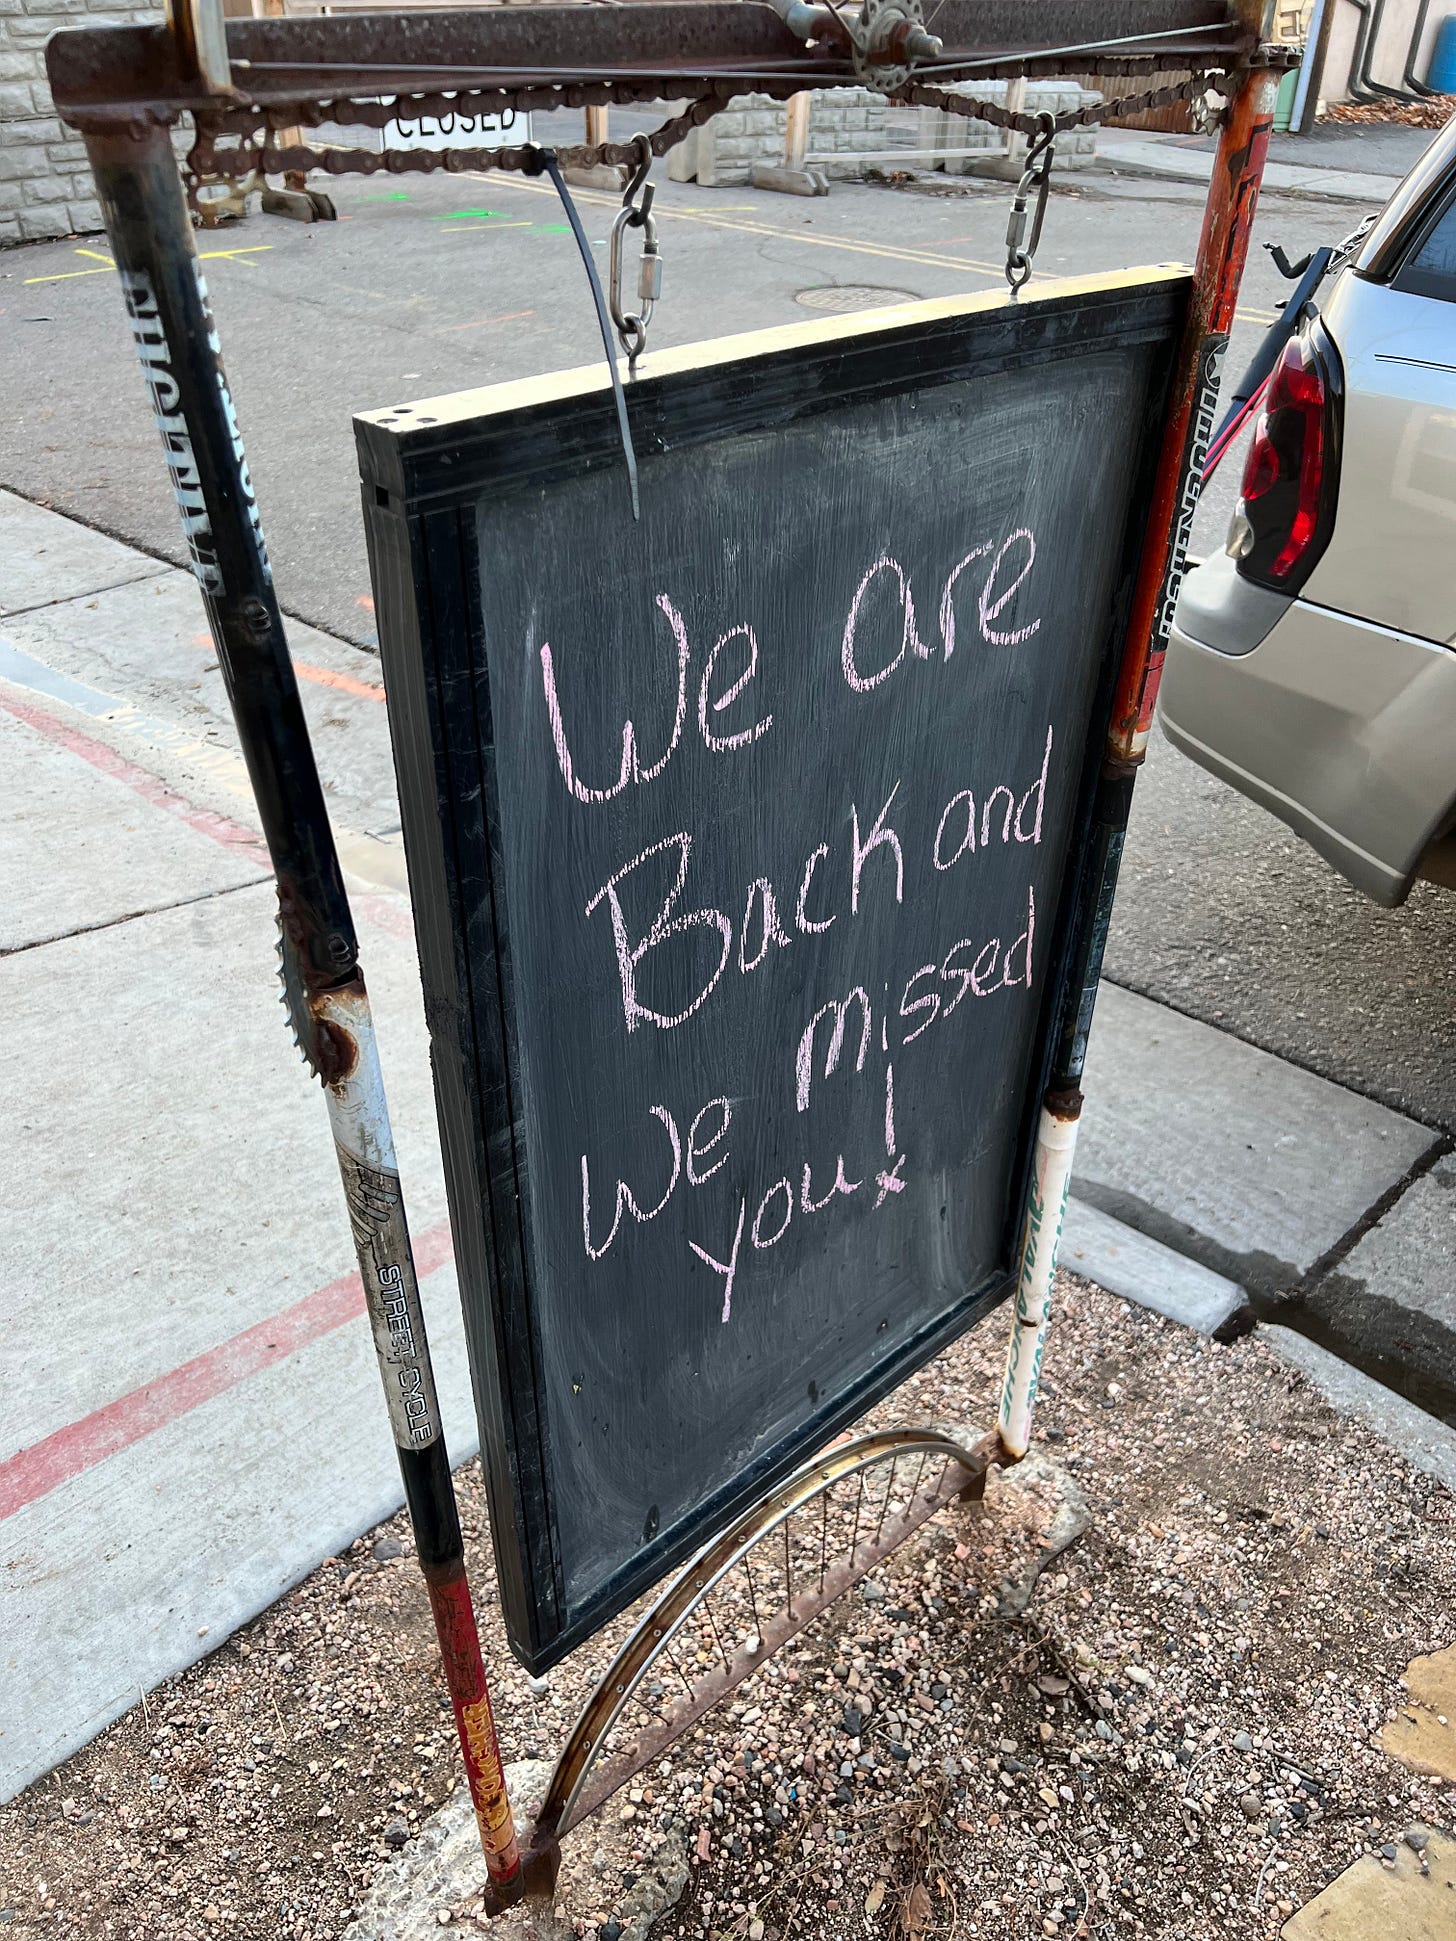 CLOSED
We are
Back and
We missed
you!
STREET CYCLE
AVALANCHE